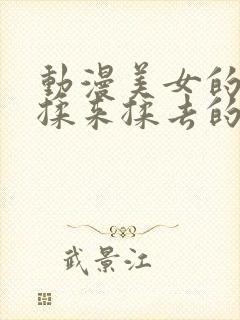 動漫美女的
揉来揉去的
武景江